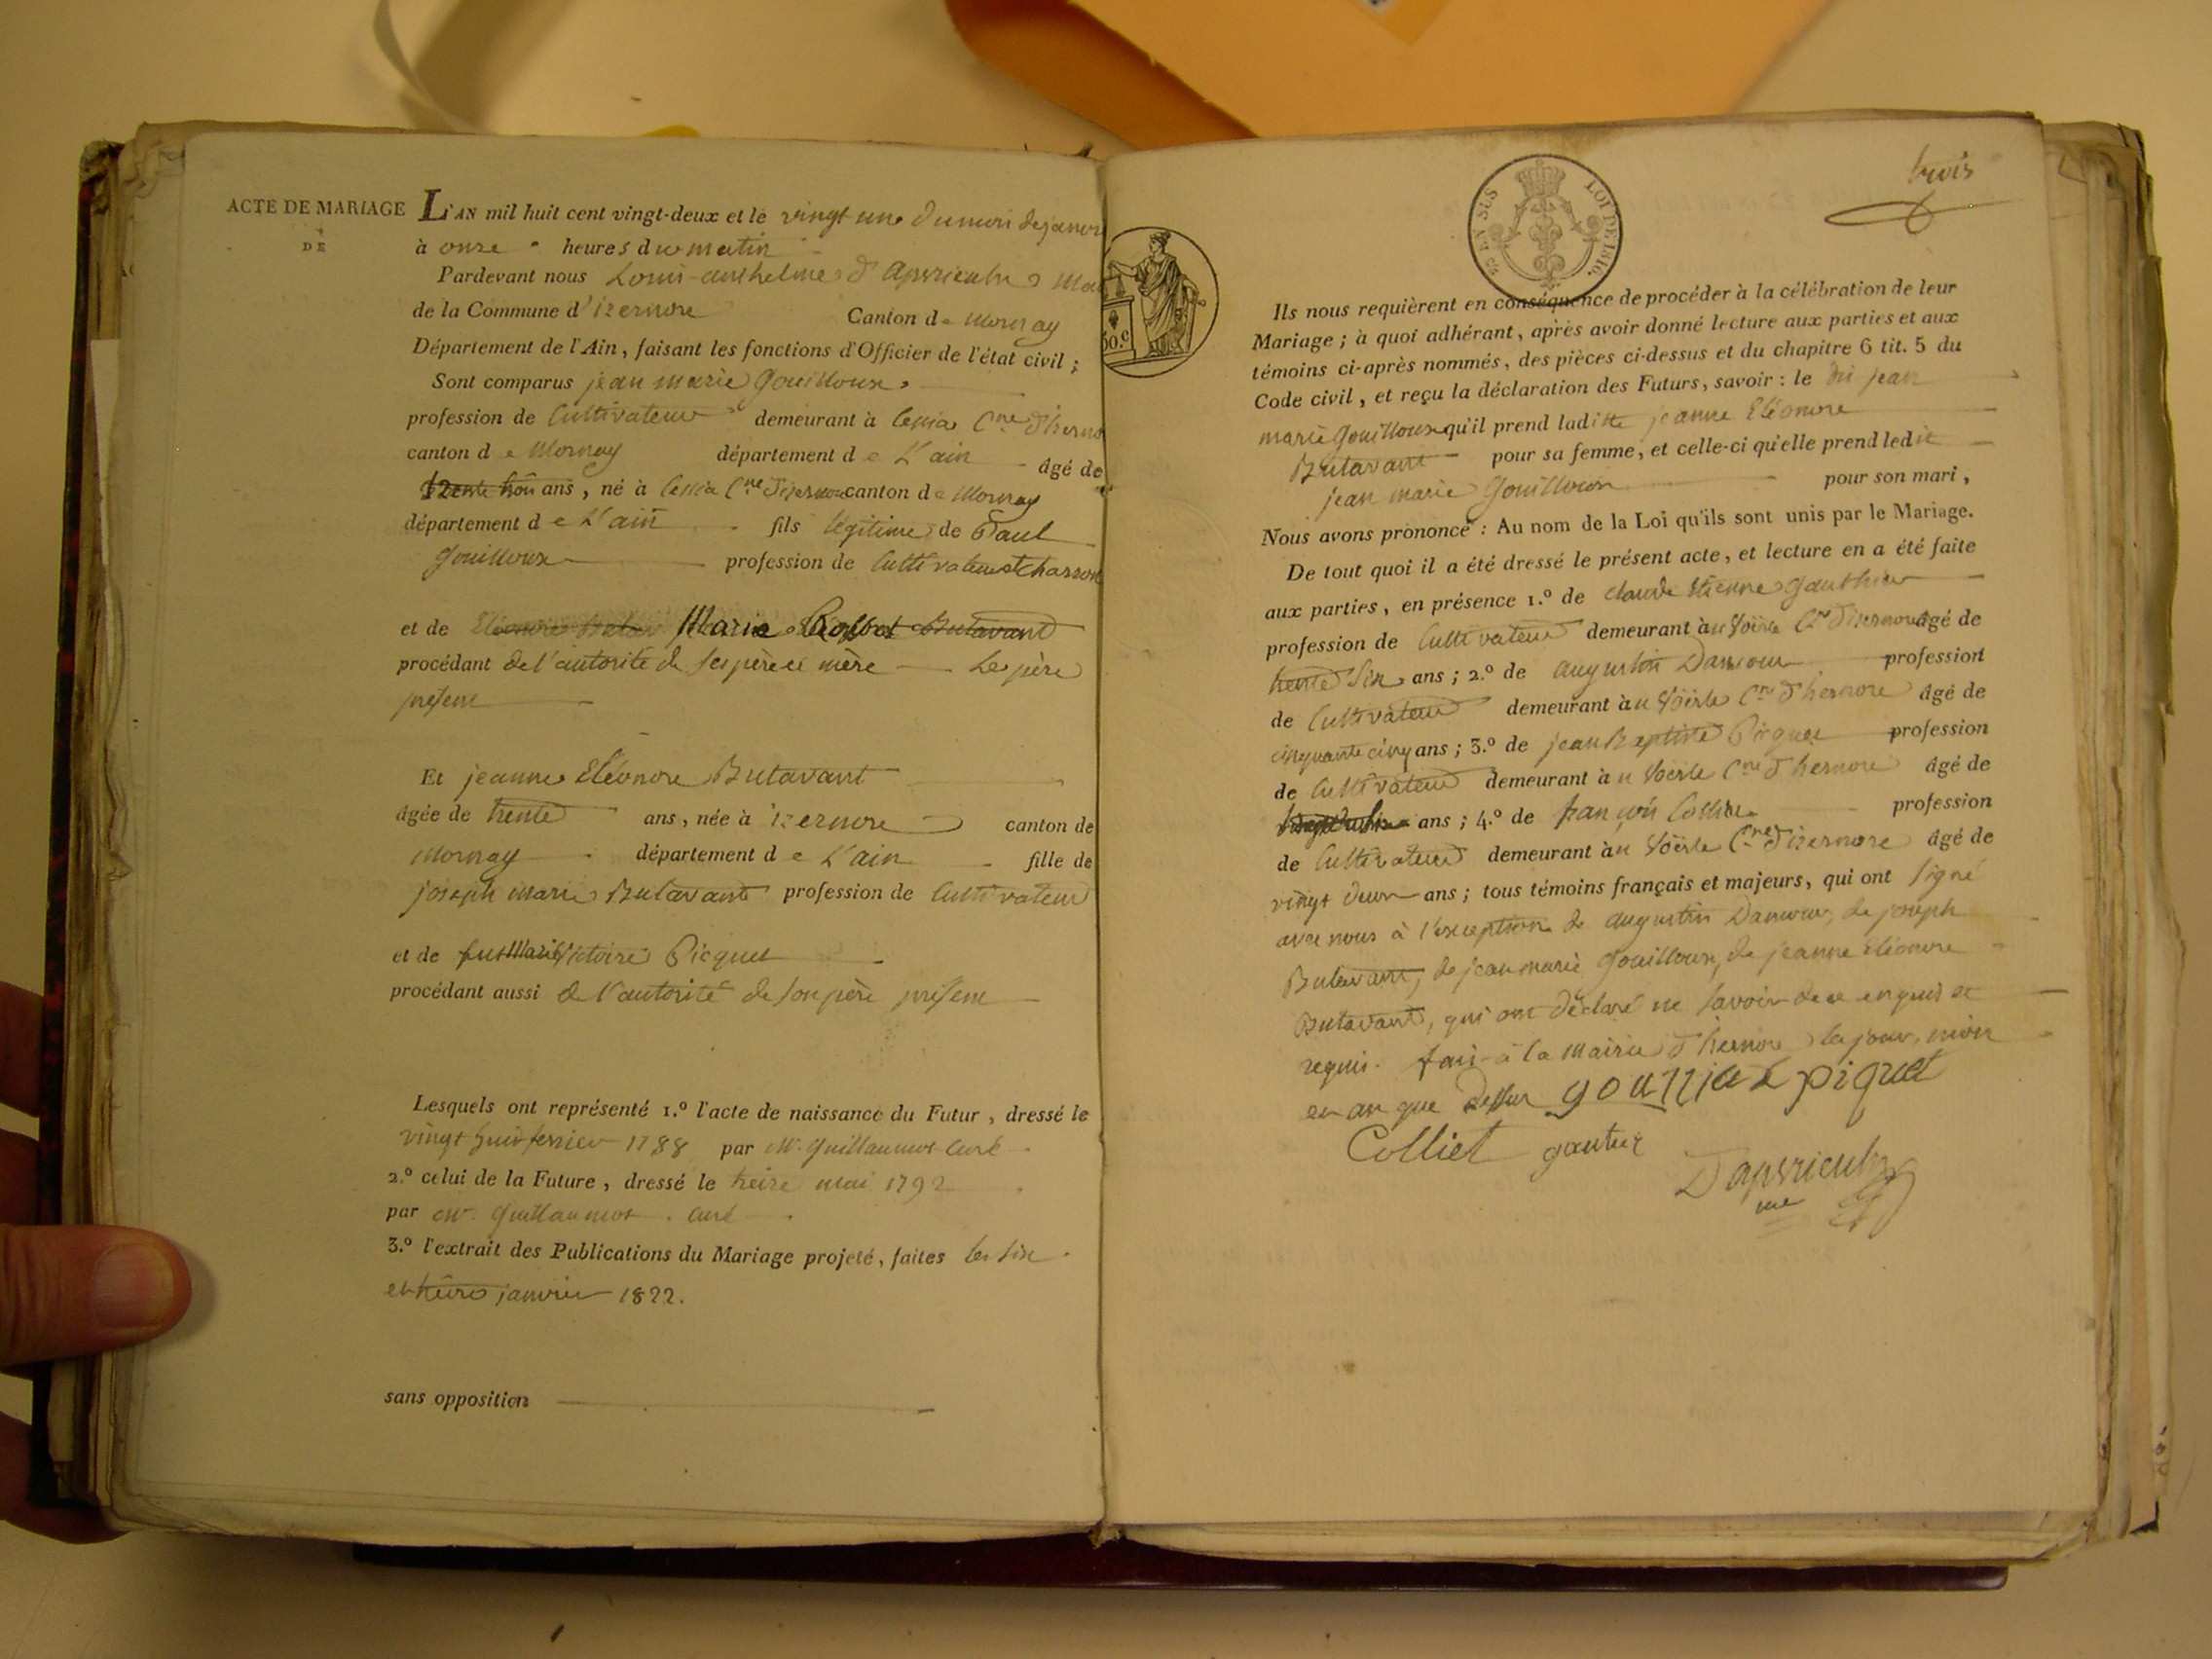 ACTE DE MARIAGE
DE
L'AN mil huit cent vingt-deux et le vingt une du mois de janvi
à onze heures du matin
Pardevant nous Louis-anthelme D'apvrieulx Mai
de la Commune d'izernore Canton de Mornay
Département de l'Ain, faisant les fonctions d'Officier de l'état civil ;
Sont comparus jean marie Gouilloux
profession de Cultivateur demeurant à Cessia Cne D'izerno
canton de Mornay département de L'ain âgé de
ans, né à Cessia Cne D'izernore canton de Mornay
département de L'ain fils légitime de Paul
Gouilloux profession de Cultivateur et charron
et de Marie
procédant de l'autorité de ses père et mère Le père
présent
Et jeanne Eléonore Butavant
âgée de trente ans, née à izernore canton de
Mornay département de L'ain fille de
joseph marie Butavant profession de Cultivateur
et de fut Marie Victoire Picquet
procédant aussi de l'autorité de son père présent
Lesquels ont représenté 1.º l'acte de naissance du Futur, dressé le
vingt huit fevrier 1788 par Mr. Guillaumot Curé
2.º celui de la Future, dressé le treize mai 1792
par Mr. Guillaumot. Curé
3.º l'extrait des Publications du Mariage projeté, faites les six
et treize janvier 1822.
sans opposition
50.c
EN SUS LOI DE 1816.
trois
Ils nous requièrent en conséquence de procéder à la célébration de leur
Mariage ; à quoi adhérant, après avoir donné lecture aux parties et aux
témoins ci-après nommés, des pièces ci-dessus et du chapitre 6 tit. 5 du
Code civil, et reçu la déclaration des Futurs, savoir : le dit jean
marie Gouilloux qu'il prend laditte jeanne Eléonore
Butavant pour sa femme, et celle-ci qu'elle prend ledit
jean marie Gouilloux pour son mari,
Nous avons prononcé : Au nom de la Loi qu'ils sont unis par le Mariage.
De tout quoi il a été dressé le présent acte, et lecture en a été faite
aux parties, en présence 1.º de claude Etienne Gauthier
profession de Cultivateur demeurant à Cne D'izernore âgé de
trente Six ans ; 2.º de augustin Damour profession
de Cultivateur demeurant à Cne D'izernore âgé de
cinquante cinq ans ; 3.º de jean Baptiste Picquet profession
de Cultivateur demeurant à Cne D'izernore âgé de
ans ; 4.º de françois Colliet profession
de Cultivateur demeurant à Cne D'izernore âgé de
vingt deux ans ; tous témoins français et majeurs, qui ont signé
avec nous à l'exception de augustin Damour, de joseph
Butavant, de jean marie Gouilloux, de jeanne Eléonore
Butavant, qui ont déclaré ne savoir de ce enquis et
requis. fait à la Mairie D'izernore les jour, mois
et an que dessus piquet
Colliet gautier
D'apvrieulx
me